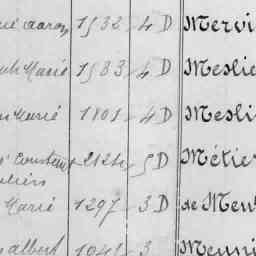 Aaron 1532 4D Mervi
Marie 1583 4D Meslie
Marie 1801 4D Mesli
Constant 2124 5D Métier
Marie 1297 3D de Meu
albert 1041 3 Meuni